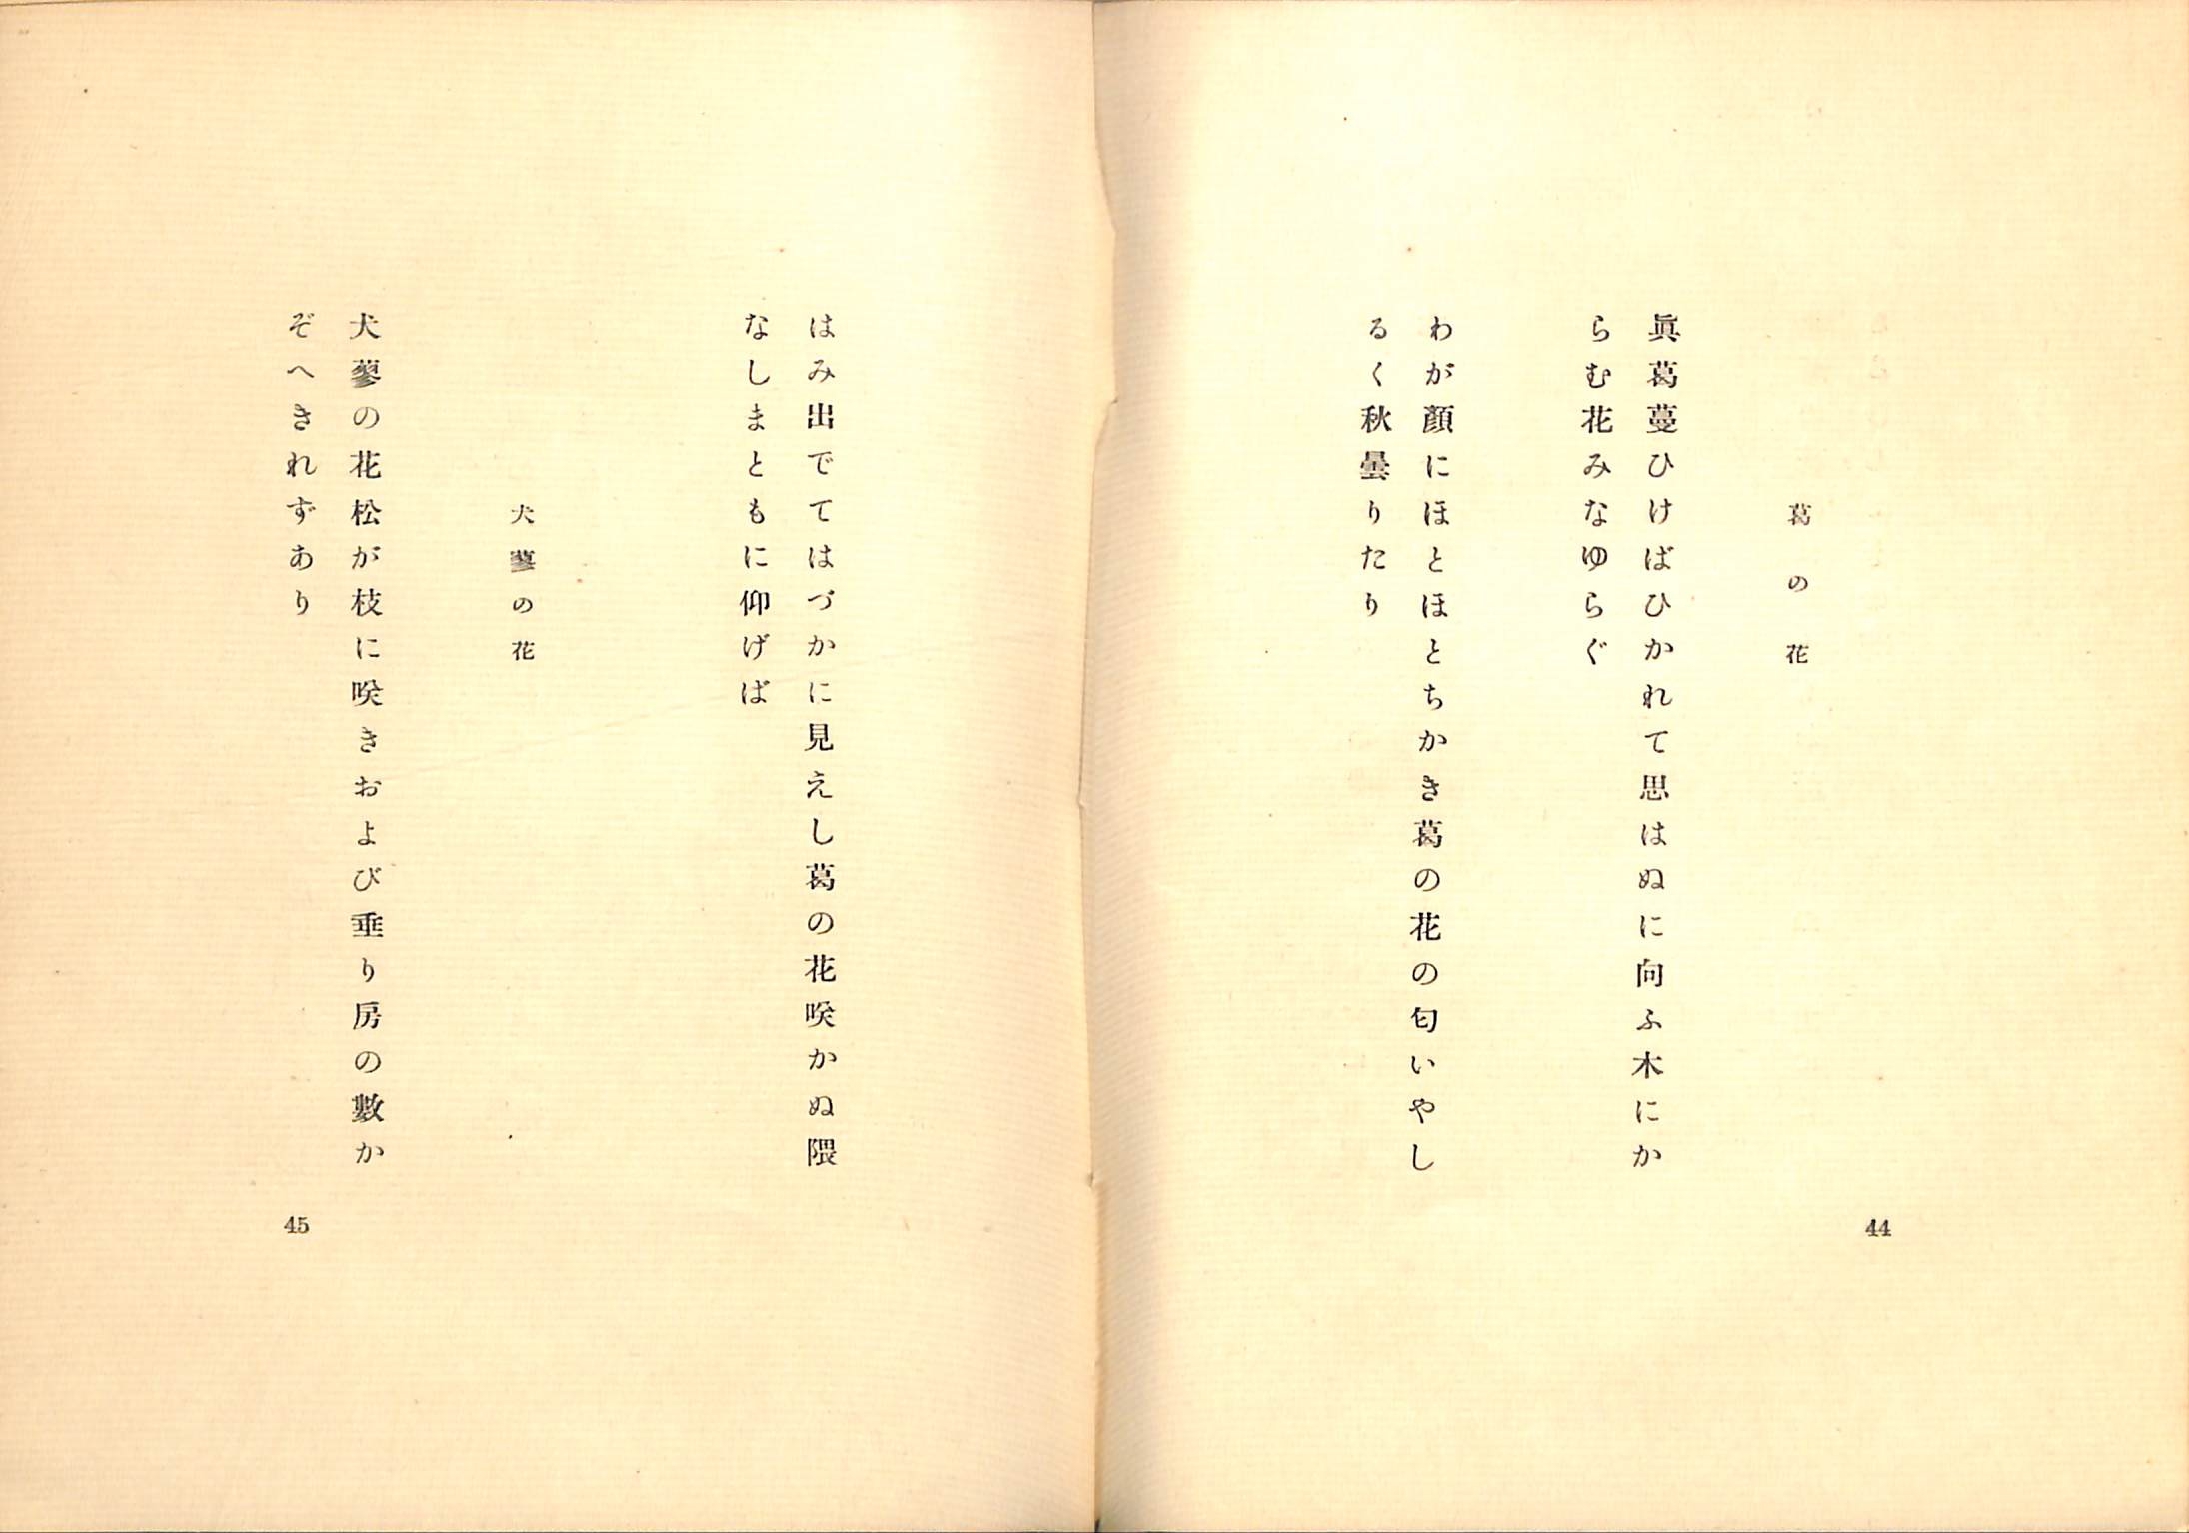 葛の花
眞葛蔓ひけばひかれて思はぬに向ふ木にか
らむ花みなゆらぐ
わが顏にほとほとちかき葛の花の匂いやし
るく秋曇りたり
44
はみ出でてはづかに見えし葛の花咲かぬ隈
なしまともに仰げば
犬蓼の花
犬蓼の花松が枝に咲きおよび垂り房の數か
ぞへきれずあり
45